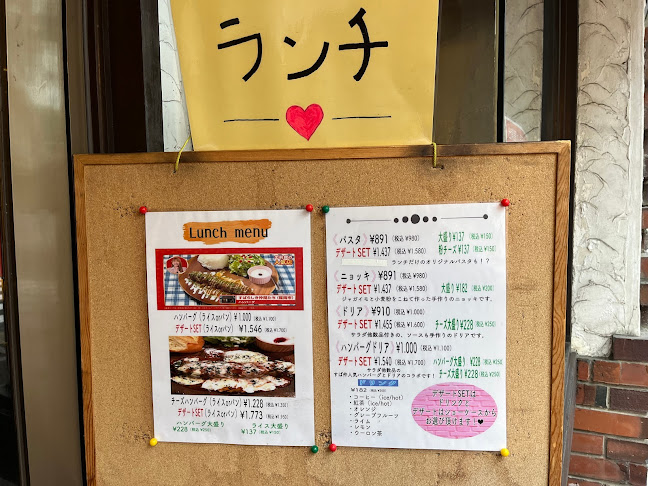 ランチ
Lunch menu
ハンバーグ(ライスorパン) ¥1,000(税込 ¥1,100)
デザートSET(ライスorパン) ¥1,546(税込 ¥1,700)
チーズハンバーグ(ライスorパン) ¥1,228(税込 ¥1,350)
デザートSET(ライスorパン) ¥1,773(税込 ¥1,950)
ハンバーグ大盛り ライス大盛り
¥228(税込 ¥250) ¥137(税込 ¥150)
《パスタ》¥891(税込 ¥980) 大盛り¥137(税込 ¥150)
デザートSET ¥1,437(税込 ¥1,580) 粉チーズ¥137(税込 ¥150)
ランチだけのオリジナルパスタも!?
《ニョッキ》¥891(税込 ¥980)
デザートSET ¥1,437(税込 ¥1,580) 大盛り ¥182(税込 ¥200)
ジャガイモと小麦粉をこねて作った手作りのニョッキです。
《ドリア》¥910(税込 ¥1,000)
デザートSET ¥1,455(税込 ¥1,600) チーズ大盛り¥228(税込 ¥250)
サラダ他数品付きの、ソースも手作りのドリアです。
《ハンバーグドリア》¥1,000(税込 ¥1,100)
デザートSET ¥1,540(税込 ¥1,700) ハンバーグ大盛り ¥228(税込 ¥250)
サラダ他数品の チーズ大盛り ¥228(税込 ¥250)
すぱ吉人気ハンバーグとドリアのコラボです!
ドリンク
¥182(税込 ¥200)
・コーヒー (ice/hot)
・紅茶 (ice/hot)
・オレンジ
・グレープフルーツ
・ライム
・レモン
・ウーロン茶
デザートSETは
ドリンクと
デザートはショーケースから
お選び頂けます!♥